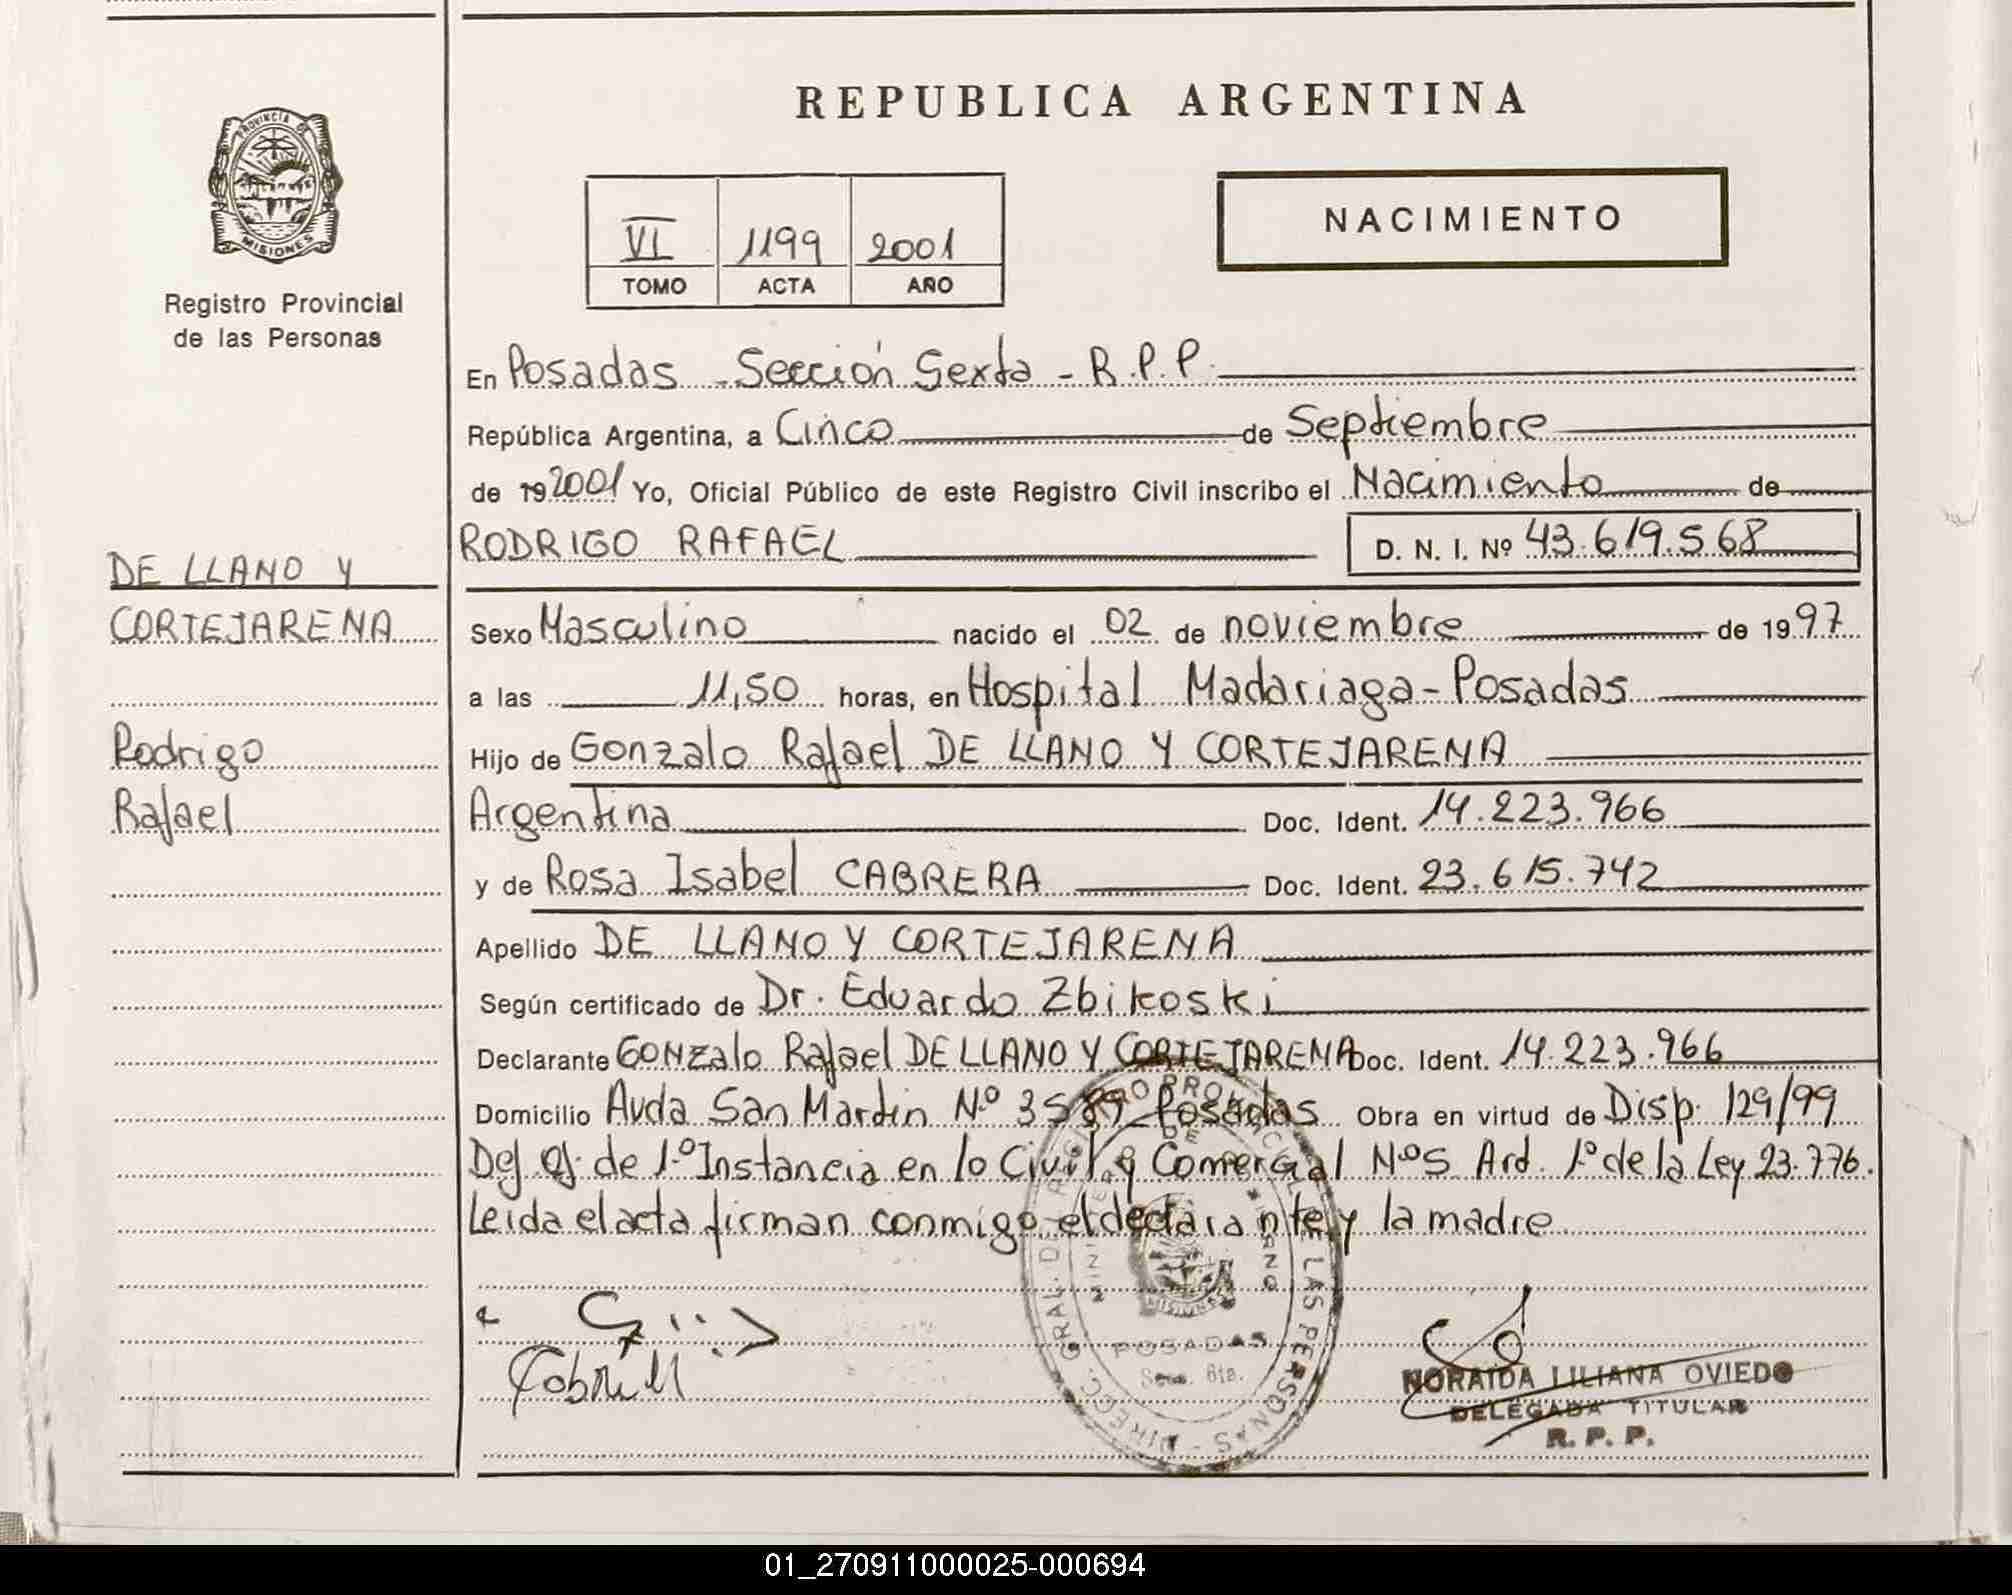 PROVINCIA DE
MISIONES
Registro Provincial
de las Personas
DE LLANO Y
CORTEJARENA
Rodrigo
Rafael
REPUBLICA ARGENTINA
VI 1199 2001
TOMO ACTA AÑO
NACIMIENTO
En Posadas - Sección Sexta - R.P.P.
República Argentina, a Cinco de Septiembre
de 19 2001 Yo, Oficial Público de este Registro Civil inscribo el Nacimiento de
RODRIGO RAFAEL D. N. I. Nº 43.619.568
Sexo Masculino nacido el 02 de noviembre de 1997
a las 11,50 horas, en Hospital Madariaga - Posadas
Hijo de Gonzalo Rafael DE LLANO Y CORTEJARENA
Argentina Doc. Ident. 14.223.966
y de Rosa Isabel CABRERA Doc. Ident. 23.615.742
Apellido DE LLANO Y CORTEJARENA
Según certificado de Dr. Eduardo Zbikoski
Declarante GONZalo Rafael DE LLANO Y CORTEJARENA Doc. Ident. 14.223.966
Domicilio Avda San Martin Nº Posadas Obra en virtud de Disp. 129/99
de 1º Instancia en lo Civil y Comercial Nº5 Art. 1º de la Ley 23.776.
Leida el acta firman conmigo el declarante y la madre
DIRECC. GRAL. DE REGISTRO PROVINCIAL DE LAS PERSONAS
MISIONES
POSADAS
Secc. 6ta.
NORAIDA LILIANA OVIEDO
DELEGADA TITULAR
R. P. P.
01_270911000025-000694